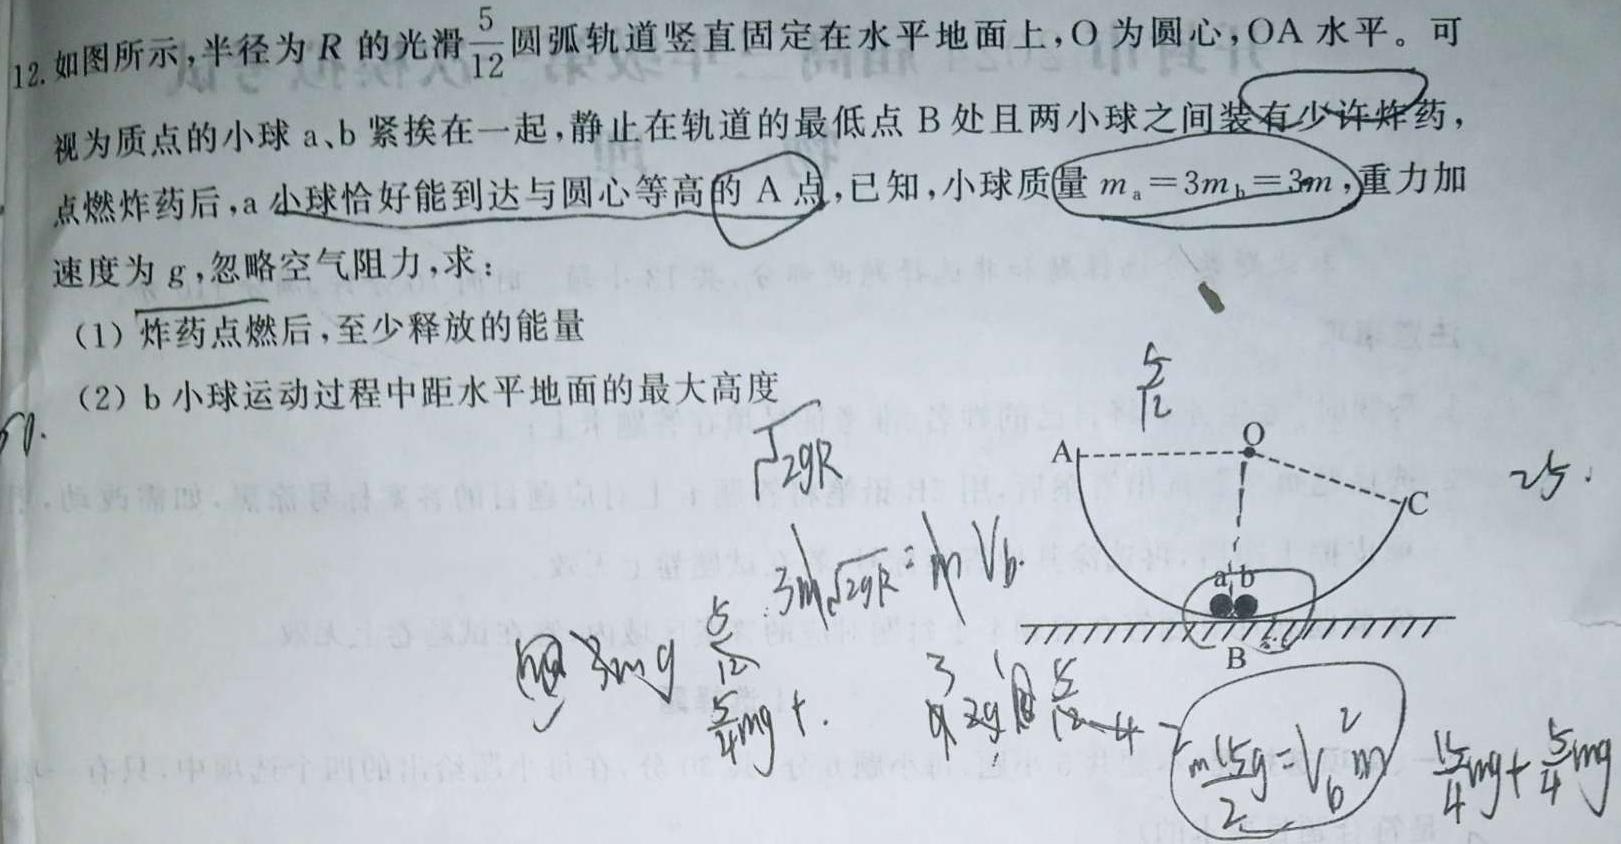 12. 如图所示,半径为 R 的光滑 5/12 圆弧轨道竖直固定在水平地面上,O 为圆心,OA 水平。可
视为质点的小球 a、b 紧挨在一起,静止在轨道的最低点 B 处且两小球之间装有少许炸药,
点燃炸药后,a 小球恰好能到达与圆心等高的 A 点,已知,小球质量 mₐ=3m_b=3m,重力加
速度为 g,忽略空气阻力,求:
(1) 炸药点燃后,至少释放的能量
(2) b 小球运动过程中距水平地面的最大高度
5/12
√2gR
A
O
C
25.
3m√2gR = mV_b.
a b
B
3mg 5/12
5/4 mg+.
m 15/2 g = V_b² m
15/4 mg + 5/4 mg